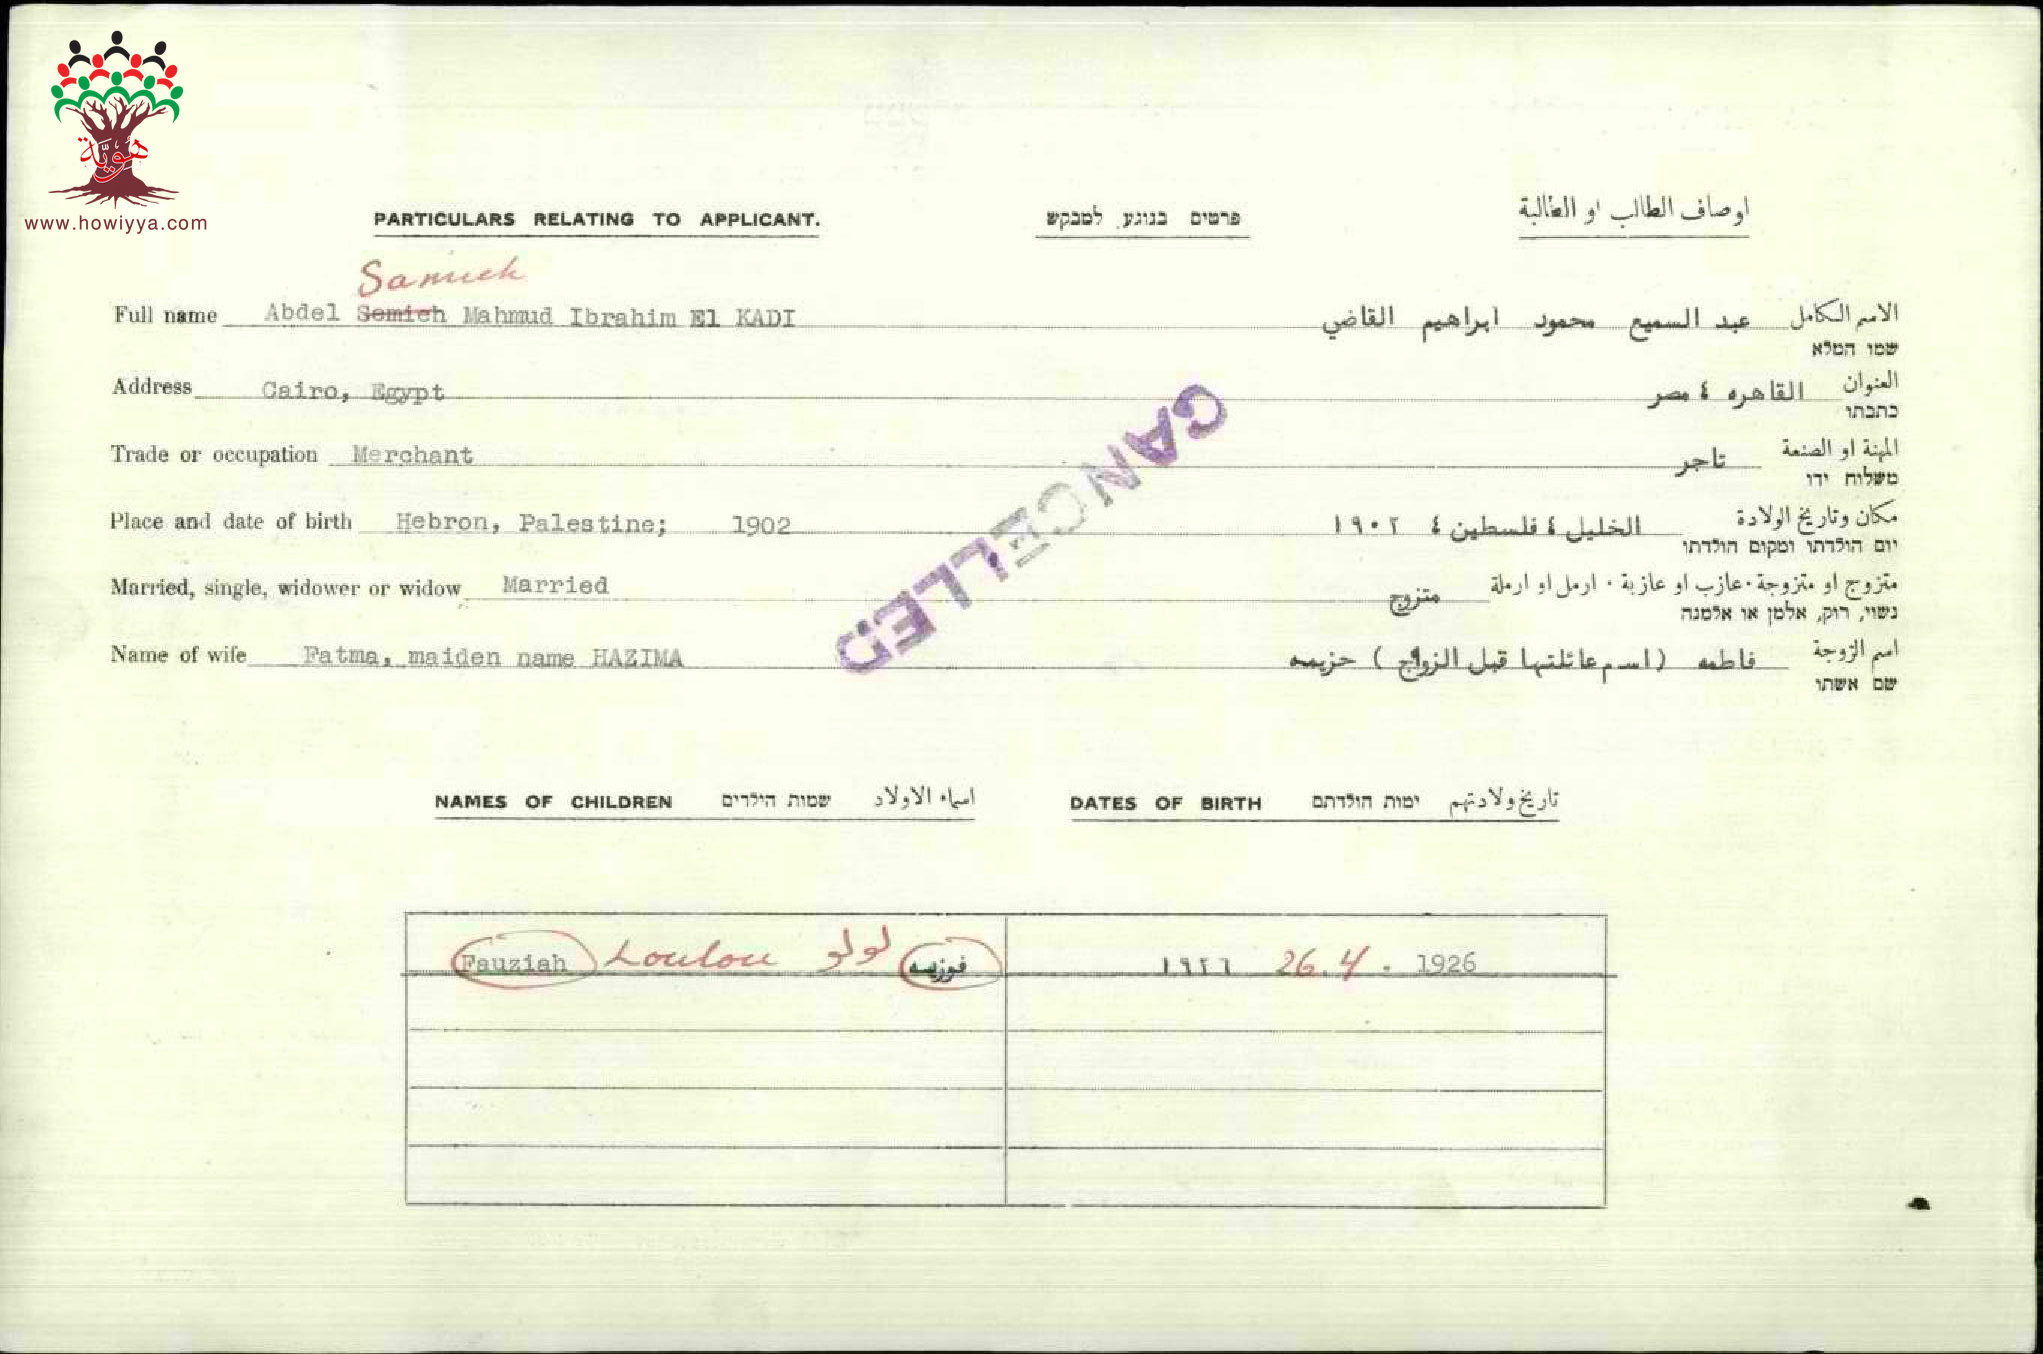 هوية
www.howiyya.com
PARTICULARS RELATING TO APPLICANT. פרטים בנוגע למבקש اوصاف الطالب او الطالبة
Samueh
Full name Abdel Semieh Mahmud Ibrahim El KADI عبد السميع محمود ابراهيم القاضي الاسم الكامل
שמו המלא
Address Cairo, Egypt القاهره ٤ مصر العنوان
כתבתו
Trade or occupation Merchant تاجر المهنة او الصنعة
משלוח ידו
Place and date of birth Hebron, Palestine; 1902 الخليل ٤ فلسطين ٤ ١٩٠٢ مكان وتاريخ الولادة
יום הולדתו ומקום הולדתו
Married, single, widower or widow Married متزوج متزوج او متزوجة · عازب او عازبة · ارمل او ارملة
נשוי, רוק, אלמן או אלמנה
Name of wife Fatma, maiden name HAZIMA فاطمه (اسم عائلتها قبل الزواج) حزيمه اسم الزوجة
שם אשתו
CANCELLED
NAMES OF CHILDREN שמות הילדים اسماء الاولاد DATES OF BIRTH ימות הולדתם تاريخ ولادتهم
Fauziah Loulou لولو فوزيه ١٩٢٦ 26.4. 1926